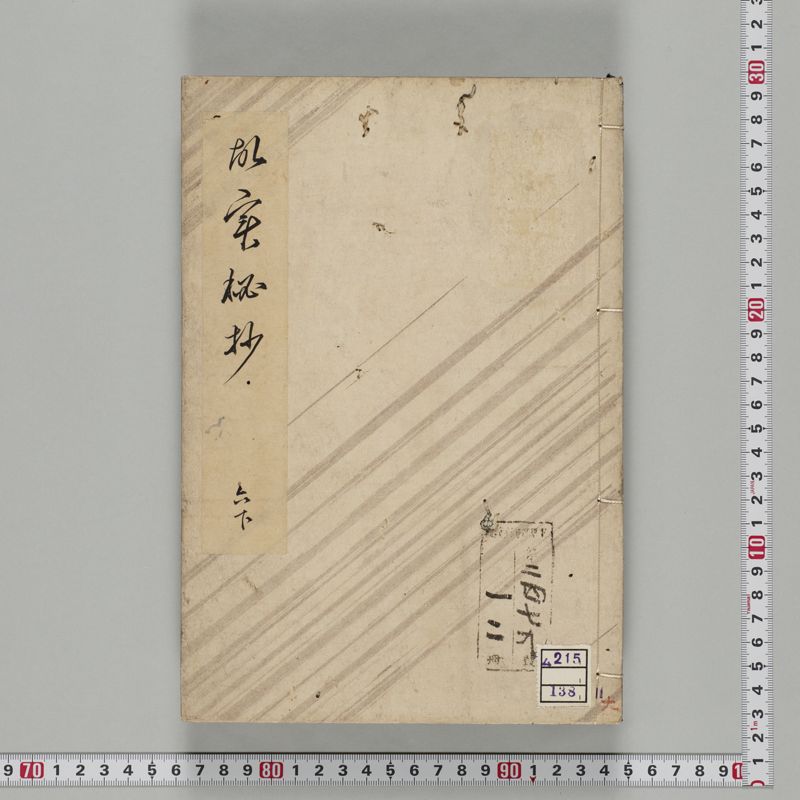 故實秘抄
六下
4
215
138
11
9 70 1 2 3 4 5 6 7 8 9 80 1 2 3 4 5 6 7 8 9 90 1 2 3 4 5 6 7 8 9
3 2 1 30 9 8 7 6 5 4 3 2 1 20 9 8 7 6 5 4 3 2 1 10 9 8 7 6 5 4 3 2 1m 1